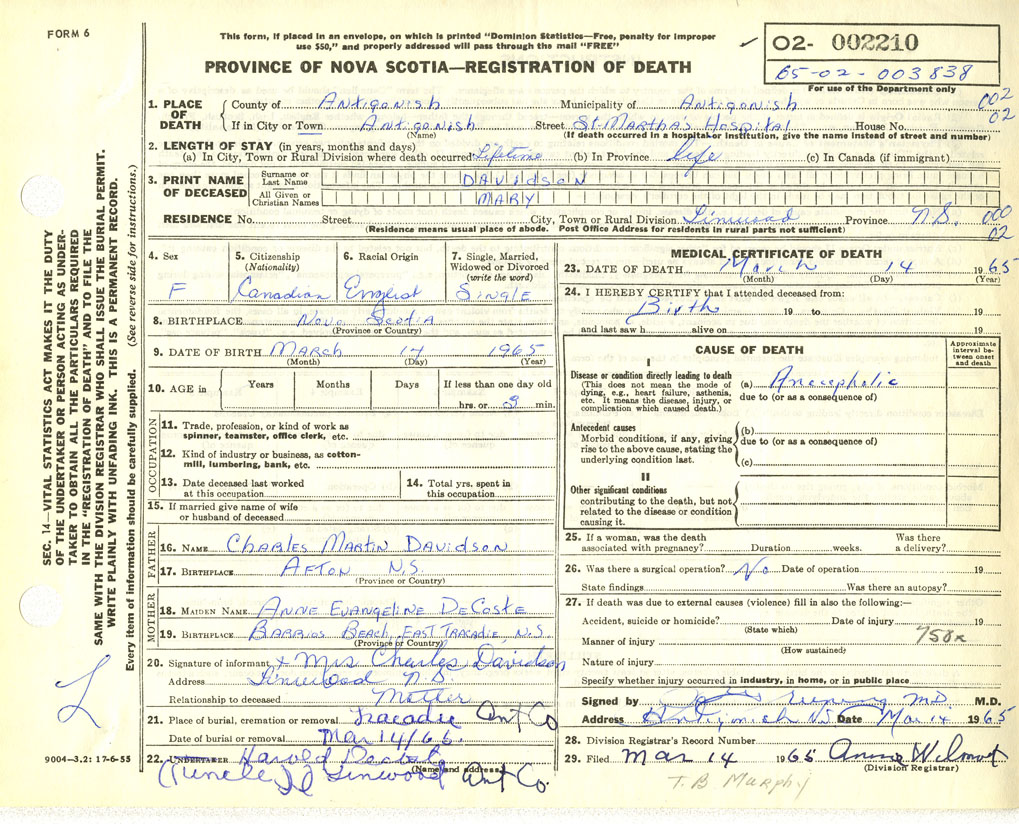 FORM 6
This form, if placed in an envelope, on which is printed "Dominion Statistics—Free, penalty for improper
use $50," and properly addressed will pass through the mail "FREE"
PROVINCE OF NOVA SCOTIA—REGISTRATION OF DEATH
✓ 02- 002210
65-02-003838
For use of the Department only
1. PLACE OF DEATH { County of Antigonish Municipality of Antigonish 002
If in City or Town Antigonish Street St. Martha's Hospital House No. 02
(Name) (If death occurred in a hospital or institution, give the name instead of street and number)
2. LENGTH OF STAY (in years, months and days)
(a) In City, Town or Rural Division where death occurred Lifetime (b) In Province life (c) In Canada (if immigrant)
3. PRINT NAME OF DECEASED { Surname or Last Name DAVIDSON
All Given or Christian Names MARY
RESIDENCE No. Street City, Town or Rural Division Linwood Province N.S. 000
(Residence means usual place of abode. Post Office Address for residents in rural parts not sufficient) 02
SEC. 14—VITAL STATISTICS ACT MAKES IT THE DUTY
OF THE UNDERTAKER OR PERSON ACTING AS UNDER-
TAKER TO OBTAIN ALL THE PARTICULARS REQUIRED
IN THE "REGISTRATION OF DEATH" AND TO FILE THE
SAME WITH THE DIVISION REGISTRAR WHO SHALL ISSUE THE BURIAL PERMIT.
WRITE PLAINLY WITH UNFADING INK. THIS IS A PERMANENT RECORD.
Every item of information should be carefully supplied. (See reverse side for instructions.)
4. Sex 5. Citizenship (Nationality) 6. Racial Origin 7. Single, Married, Widowed or Divorced (write the word)
F Canadian English SINGLE
8. BIRTHPLACE Nova Scotia
(Province or Country)
9. DATE OF BIRTH March 14 1965
(Month) (Day) (Year)
10. AGE in { Years Months Days If less than one day old
hrs. or min.
OCCUPATION
11. Trade, profession, or kind of work as
spinner, teamster, office clerk, etc.
12. Kind of industry or business, as cotton-
mill, lumbering, bank, etc.
13. Date deceased last worked
at this occupation
14. Total yrs. spent in
this occupation
15. If married give name of wife
or husband of deceased
FATHER
16. NAME Charles Martin Davidson
17. BIRTHPLACE AFTON N.S.
(Province or Country)
MOTHER
18. MAIDEN NAME Anne Evangeline DeCoste
19. BIRTHPLACE Barrios Beach, East Tracadie, N.S
(Province or Country)
20. Signature of informant x Mrs Charles Davidson
Address Linwood N.S.
Relationship to deceased Mother
21. Place of burial, cremation or removal Tracadie Ant Co
Date of burial or removal Mar 14/65.
22. UNDERTAKER Harold
(Name and address)
(Uncle) Linwood Ant Co.
9004—3.2: 17-6-55
MEDICAL CERTIFICATE OF DEATH
23. DATE OF DEATH March 14 1965
(Month) (Day) (Year)
24. I HEREBY CERTIFY that I attended deceased from:
Birth 19 to 19
and last saw h alive on 19
CAUSE OF DEATH
Approximate interval between onset and death
I
Disease or condition directly leading to death
(This does not mean the mode of
dying, e.g., heart failure, asthenia,
etc. It means the disease, injury, or
complication which caused death.)
(a) Anecephalic
due to (or as a consequence of)
Antecedent causes
Morbid conditions, if any, giving
rise to the above cause, stating the
underlying condition last.
(b)
due to (or as a consequence of)
(c)
II
Other significant conditions
contributing to the death, but not
related to the disease or condition
causing it.
25. If a woman, was the death
associated with pregnancy? Duration weeks. Was there a delivery?
26. Was there a surgical operation? No Date of operation 19
State findings Was there an autopsy?
27. If death was due to external causes (violence) fill in also the following:—
Accident, suicide or homicide? Date of injury 19
(State which) 750x
Manner of injury
(How sustained)
Nature of injury
Specify whether injury occurred in industry, in home, or in public place
Signed by M.D. M.D.
Address Antigonish NS Date Mar 14 1965
28. Division Registrar's Record Number
29. Filed Mar 14 1965 Anne Wilmot
(Division Registrar)
T. B. Murphy